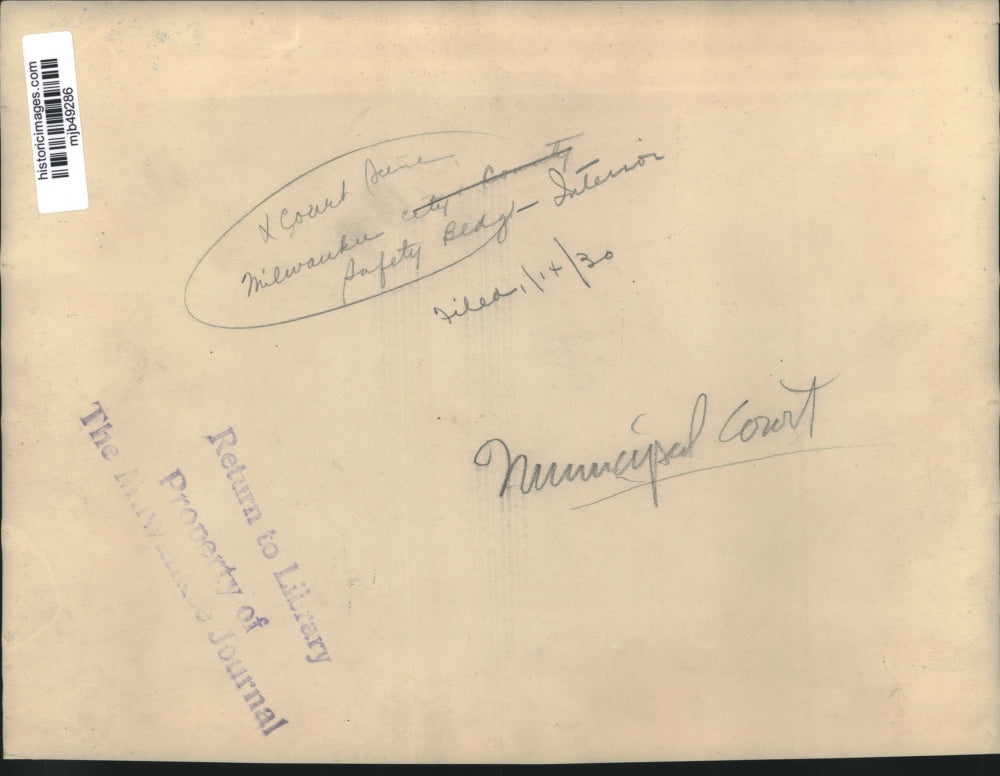 historicimages.com
mjb49286
x Court Scene
Milwaukee city County
Safety Bldg - Interior
Filed 1/14/30
Municipal Court
Return to Library
Property of
The Milwaukee Journal